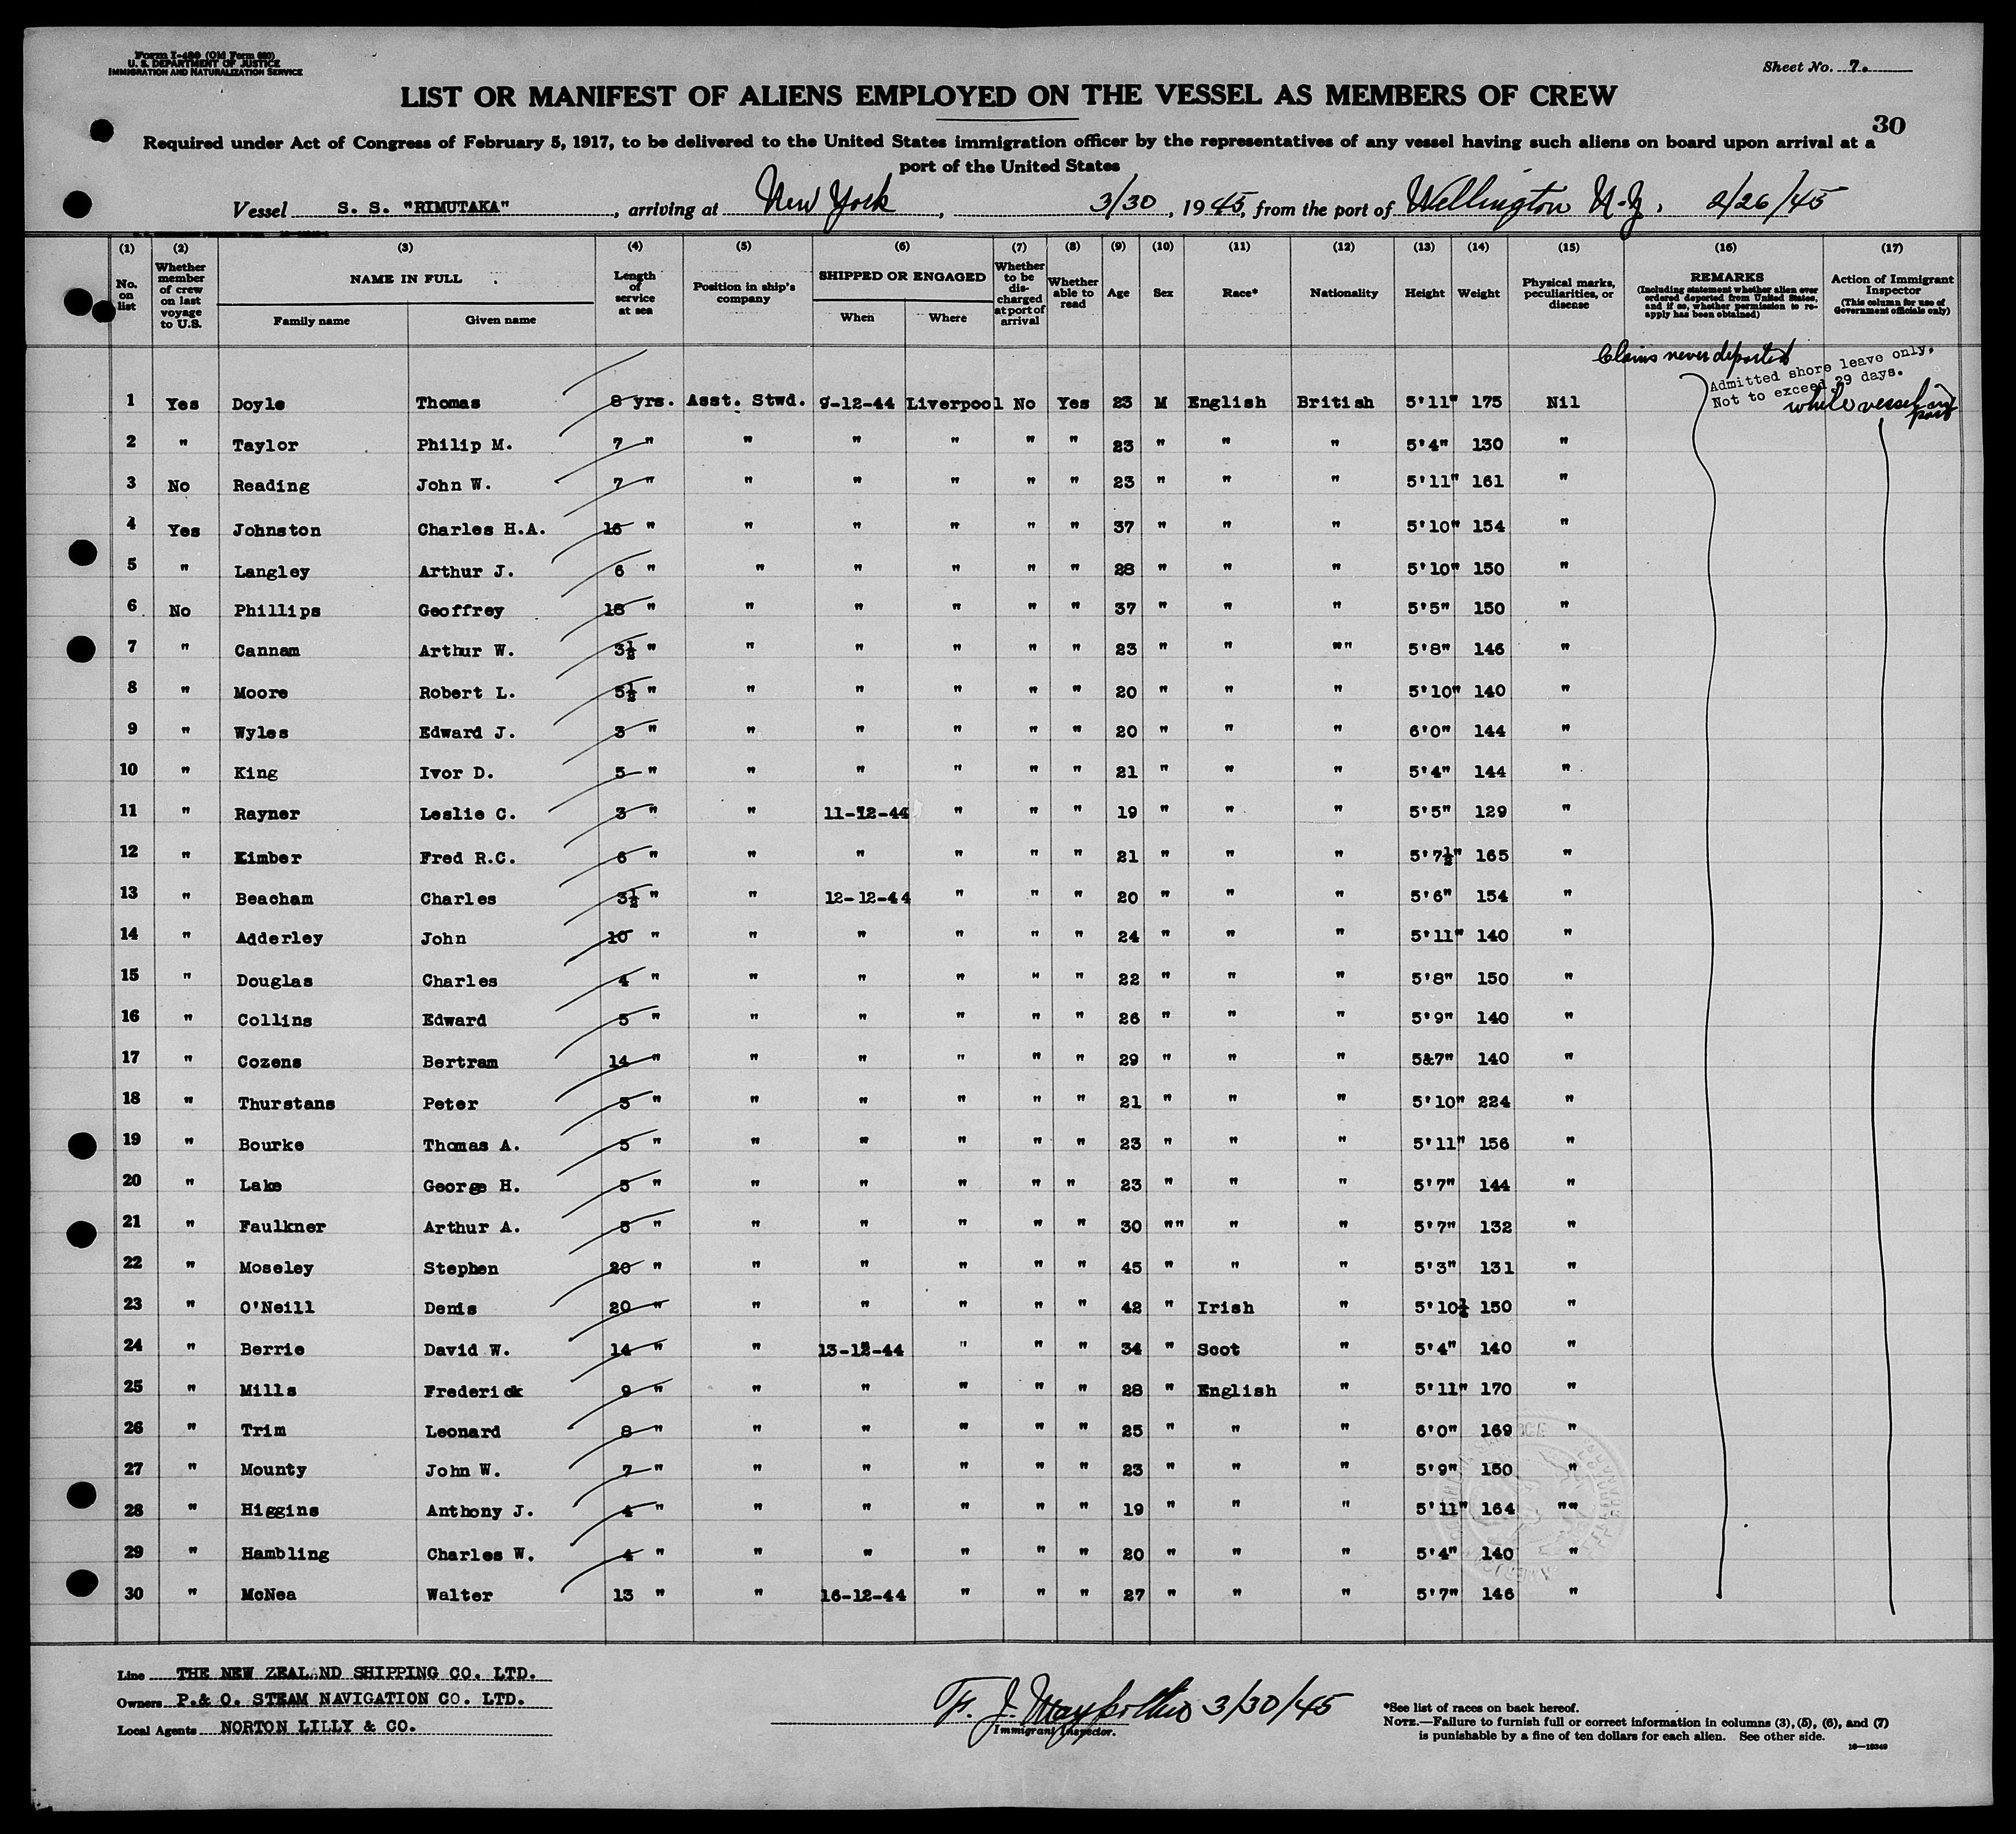 Form I-489 (Old Form 680)
U. S. DEPARTMENT OF JUSTICE
IMMIGRATION AND NATURALIZATION SERVICE
Sheet No. 7.
LIST OR MANIFEST OF ALIENS EMPLOYED ON THE VESSEL AS MEMBERS OF CREW
30
Required under Act of Congress of February 5, 1917, to be delivered to the United States immigration officer by the representatives of any vessel having such aliens on board upon arrival at a
port of the United States
Vessel S. S. "RIMUTAKA", arriving at New York, 3/30, 1945, from the port of Wellington N.Z. 2/26/45
(1) (2) (3) (4) (5) (6) (7) (8) (9) (10) (11) (12) (13) (14) (15) (16) (17)
No. on list
Whether member of crew on last voyage to U.S.
NAME IN FULL
Family name
Given name
Length of service at sea
Position in ship's company
SHIPPED OR ENGAGED
When
Where
Whether to be discharged at port of arrival
Whether able to read
Age
Sex
Race*
Nationality
Height
Weight
Physical marks, peculiarities, or disease
REMARKS
(Including statement whether alien ever ordered deported from United States, and if so, whether permission to reapply has been obtained)
Action of Immigrant Inspector
(This column for use of Government officials only)
Claims never deported
Admitted shore leave only.
Not to exceed 29 days.
while vessel in port
1 Yes Doyle Thomas 8 yrs. Asst. Stwd. 9-12-44 Liverpool No Yes 23 M English British 5'11" 175 Nil
2 " Taylor Philip M. 7 " " " " " " 23 " " " 5'4" 130 "
3 No Reading John W. 7 " " " " " " 23 " " " 5'11" 161 "
4 Yes Johnston Charles H.A. 16 " " " " " " 37 " " " 5'10" 154 "
5 " Langley Arthur J. 6 " " " " " " 28 " " " 5'10" 150 "
6 No Phillips Geoffrey 18 " " " " " " 37 " " " 5'5" 150 "
7 " Cannam Arthur W. 3½ " " " " " " 23 " " "" 5'8" 146 "
8 " Moore Robert L. 5½ " " " " " " 20 " " " 5'10" 140 "
9 " Wyles Edward J. 3 " " " " " " 20 " " " 6'0" 144 "
10 " King Ivor D. 5 " " " " " " 21 " " " 5'4" 144 "
11 " Rayner Leslie C. 3 " " 11-12-44 " " " 19 " " " 5'5" 129 "
12 " Kimber Fred R.C. 6 " " " " " " 21 " " " 5'7½" 165 "
13 " Beacham Charles 3½ " " 12-12-44 " " " 20 " " " 5'6" 154 "
14 " Adderley John 10 " " " " " " 24 " " " 5'11" 140 "
15 " Douglas Charles 4 " " " " " " 22 " " " 5'8" 150 "
16 " Collins Edward 5 " " " " " " 26 " " " 5'9" 140 "
17 " Cozens Bertram 14 " " " " " " 29 " " " 5&7" 140 "
18 " Thurstans Peter 3 " " " " " " 21 " " " 5'10" 224 "
19 " Bourke Thomas A. 5 " " " " " " 23 " " " 5'11" 156 "
20 " Lake George H. 5 " " " " " " 23 " " " 5'7" 144 "
21 " Faulkner Arthur A. 5 " " " " " " 30 "" " " 5'7" 132 "
22 " Moseley Stephen 20 " " " " " " 45 " " " 5'3" 131 "
23 " O'Neill Denis 20 " " " " " " 42 " Irish " 5'10½ 150 "
24 " Berrie David W. 14 " " 13-12-44 " " " 34 " Scot " 5'4" 140 "
25 " Mills Frederick 9 " " " " " " 28 " English " 5'11" 170 "
26 " Trim Leonard 8 " " " " " " 25 " " " 6'0" 169 "
27 " Mounty John W. 7 " " " " " " 23 " " " 5'9" 150 "
28 " Higgins Anthony J. 4 " " " " " " 19 " " " 5'11" 164 ""
29 " Hambling Charles W. 4 " " " " " " 20 " " " 5'4" 140 "
30 " McNea Walter 13 " " 16-12-44 " " " 27 " " " 5'7" 146 "
Line THE NEW ZEALAND SHIPPING CO. LTD.
Owners P.& O. STEAM NAVIGATION CO. LTD.
Local Agents NORTON LILLY & CO.
F. J. 3/30/45
Immigrant Inspector.
*See list of races on back hereof.
NOTE.—Failure to furnish full or correct information in columns (3), (5), (6), and (7)
is punishable by a fine of ten dollars for each alien. See other side.